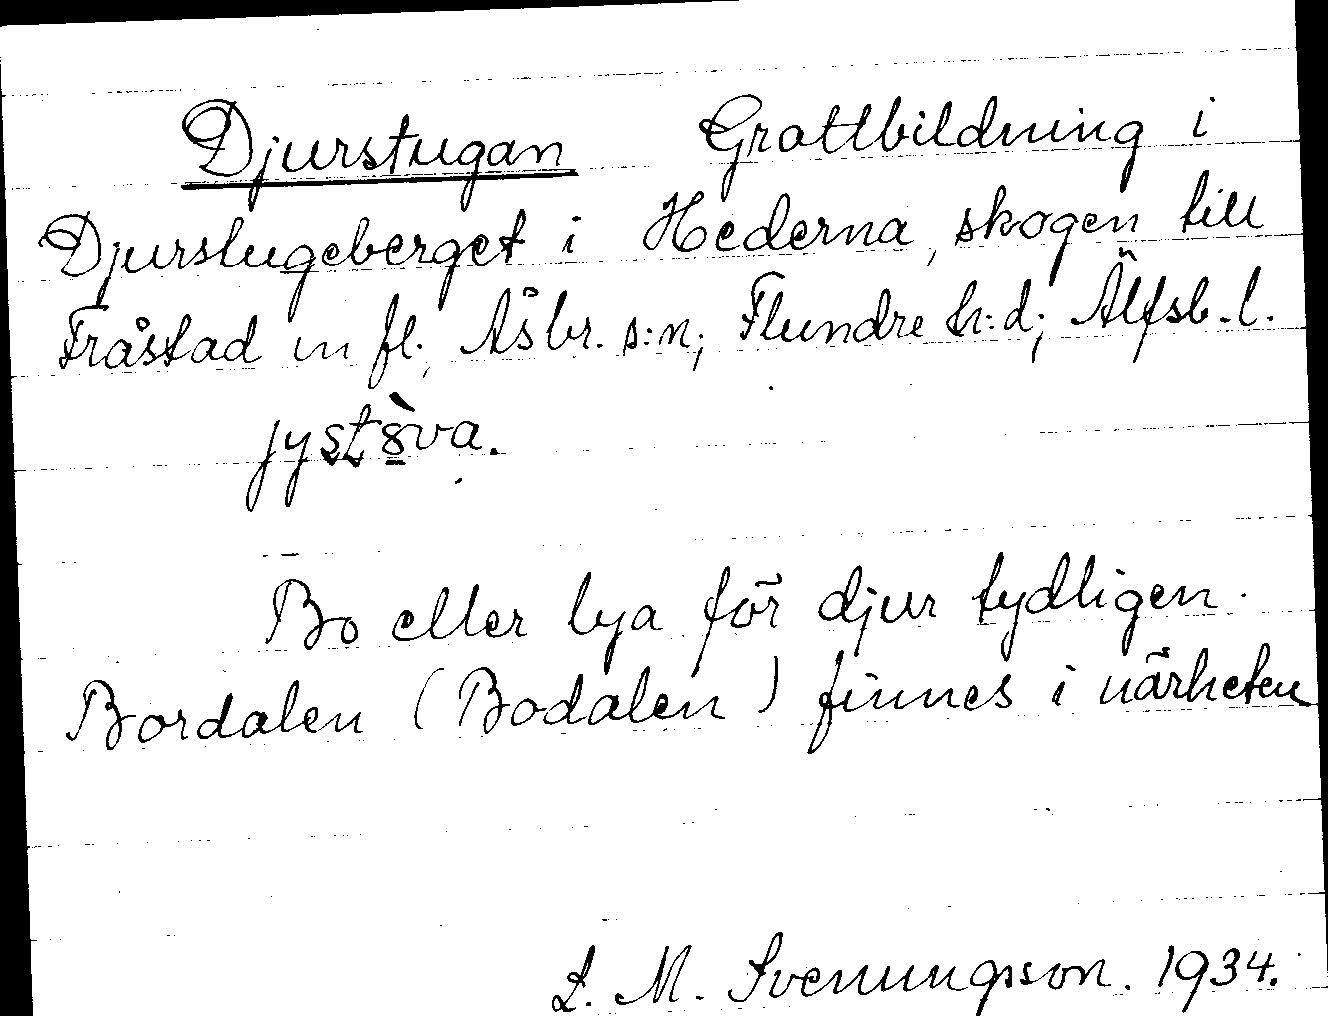 Djurstugan Grottbildning i
Djurstugeberget i Hederna, skogen till
Fråstad m fl., Åsbr. s:n; Flundre h:d; Älfsb. l.
jystòva.
Bo eller lya för djur tydligen.
Bordalen (Bodalen) finnes i närheten
L. M. Svenungsson. 1934.